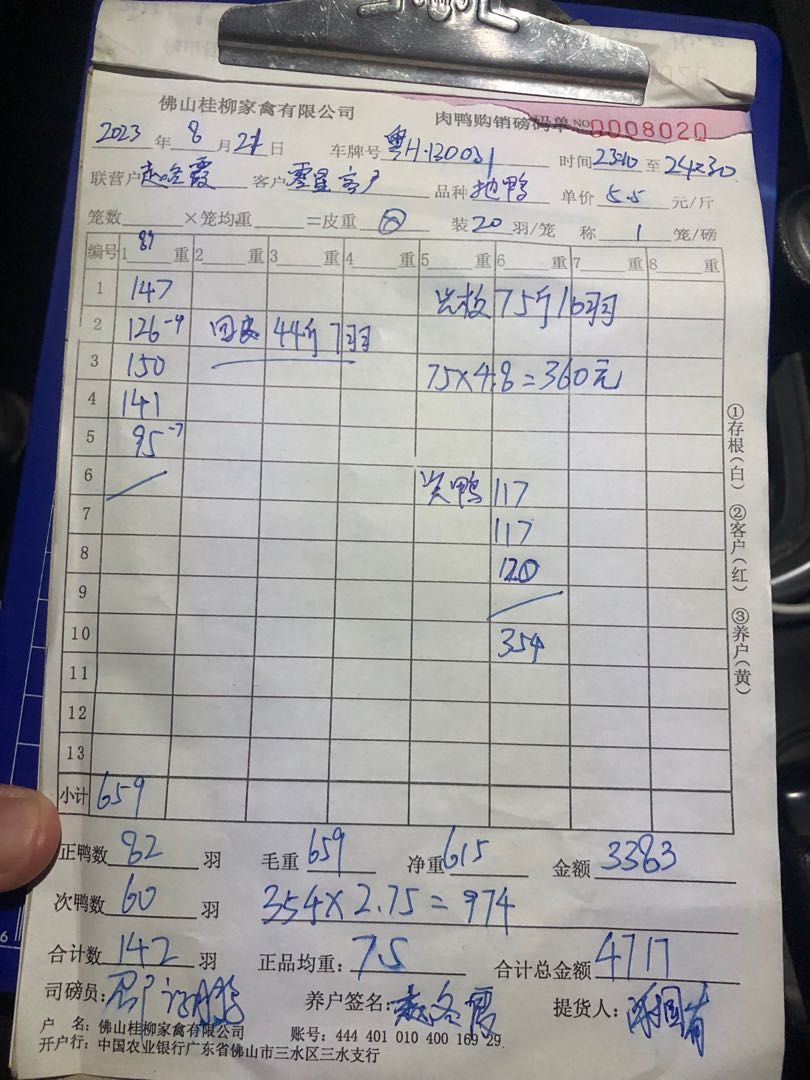 佛山桂柳家禽有限公司 肉鸭购销磅码单 NO 0008020
2023 年 8 月 21 日 车牌号 粤H·130031 时间 23:10 至 24:30
联营户 赵冬霞 客户 零星客户 品种 北鸭 单价 5.5 元/斤
笼数 ×笼均重 =皮重 装 20 羽/笼 称 1 笼/磅
89
编号 1 重 2 重 3 重 4 重 5 重 6 重 7 重 8 重
1 147 75斤16羽
2 126-9 回皮 44斤7羽
3 150 75×4.8=360元
4 141
5 95-7
6 次鸭 117
7 117
8 120
9
10 354
11
12
13
小计 659
正鸭数 82 羽 毛重 659 净重 615 金额 3383
次鸭数 60 羽 354×2.75=974
合计数 142 羽 正品均重: 7.5 合计总金额 4717
司磅员: 养户签名: 赵冬霞 提货人:
户 名: 佛山桂柳家禽有限公司 账号: 444 401 010 400 169 29
开户行: 中国农业银行广东省佛山市三水区三水支行
①存根(白) ②客户(红) ③养户(黄)
6